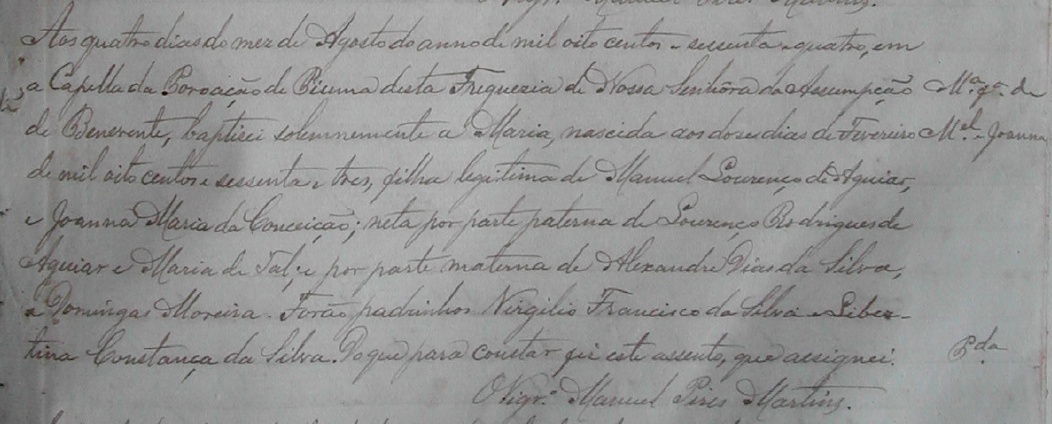 Aos quatro dias do mez de Agosto do anno de mil oito centos e sessenta e quatro, em
a Capella da Poroação de Piuma desta Freguezia de Nossa Senhôra da Assumpção
de Benevente, baptisei solemnemente a Maria, nascida aos dose dias de Fevereiro
de mil oito centos e sessenta e tres, filha legitima de Manuel Lourenço de Aguiar,
e Joanna Maria da Conceição; neta por parte paterna de Lourenço Rodrigues de
Aguiar e Maria de Tal; e por parte materna de Alexandre Dias da Silva,
e Domingas Moreira. Forão padrinhos Virgilio Francisco da Silva e Liber-
tina Constança da Silva. Do que para constar fiz este assento, que assignei.
O Vigr.º Manuel Pires Martins.
M.ª f.ª de
M.el e Joanna
P.da